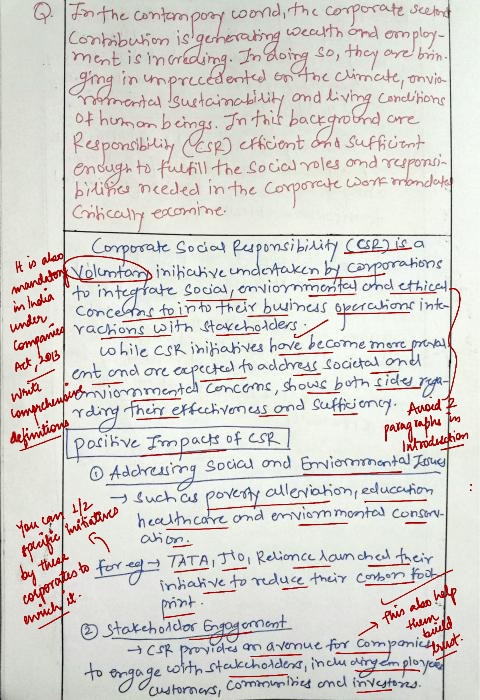 Q. In the contempory world, the corporate sectors
Contribution is generating wealth and employ-
ment is increading. In doing so, they are brin-
ging in unprecedented on the climate, envio-
nomental sustainability and living conditions
of human beings. In this background are
Responsibility (CSR) efficient and sufficient
enough to fulfill the social roles and responsi-
bilities needed in the Corporate work mandated
Critically examine.
Corporate Social Responsibility (CSR) is a
Voluntary initiative undertaken by corporations
to integrate social, enviornmental and ethical
Concerns to into their business operations inte-
ractions with stakeholders.
While CSR initiatives have become more preval
ent and are expected to address societal and
enviornmental concerns, shows both sides rega-
rding their effectiveness and sufficiency.
It is also
mandatory
in India
under
Companies
Act, 2013
Write
comprehensive
definitions
Avoid 2
paragraphs in
Introduction
Positive Impacts of CSR
① Addressing Social and Enviornmental Issues
→ Such as poverty alleviation, education
healthcare and enviornmental conserv-
ation.
for eg → TATA, JIO, Reliance launched their
intiative to reduce their carbon foot
print.
You can 1/2
specific initiatives
by these
corporates to
enrich it.
② Stakeholder Engagement
→ CSR provides an avenue for Companies
to engage with stakeholders, including employees
customers, communities and investores.
→ This also help
them build
trust.